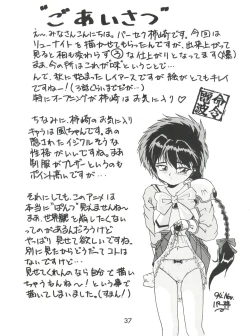 "ごあいさつ"
え〜、みなさんこんにちは、パーセク柿崎です。今回は
リューナイトを描かせてもらったんですが、出来上がって
見ると相も変わらず③な仕上がりとなってます(爆)
まぁ、今の所はこれが味ということで…
んで、秋に始まったレイアースですが絵がとてもキレイ
ですねー!
特にオープニングが柿崎はお気に入り♡
ちなみに、柿崎のお気に入り
キャラは風ちゃんです。あの
隠されたイジワルそうな
性格がいいです。まぁ
制服がブレザーというのも
ポイント高いですが…
それにしても、このアニメは
本当に"ぱんつ"見えませんねー
まぁ、世界観を崩したくない
ってのがあるんだろうけど
やっぱり見せて欲しいですね。
別に見せからどうだってコト
はないですけど…
見せてくれんのなら自分で描い
ちゃうもんねー!という事で
描いてしまいました。(すまん!)
37